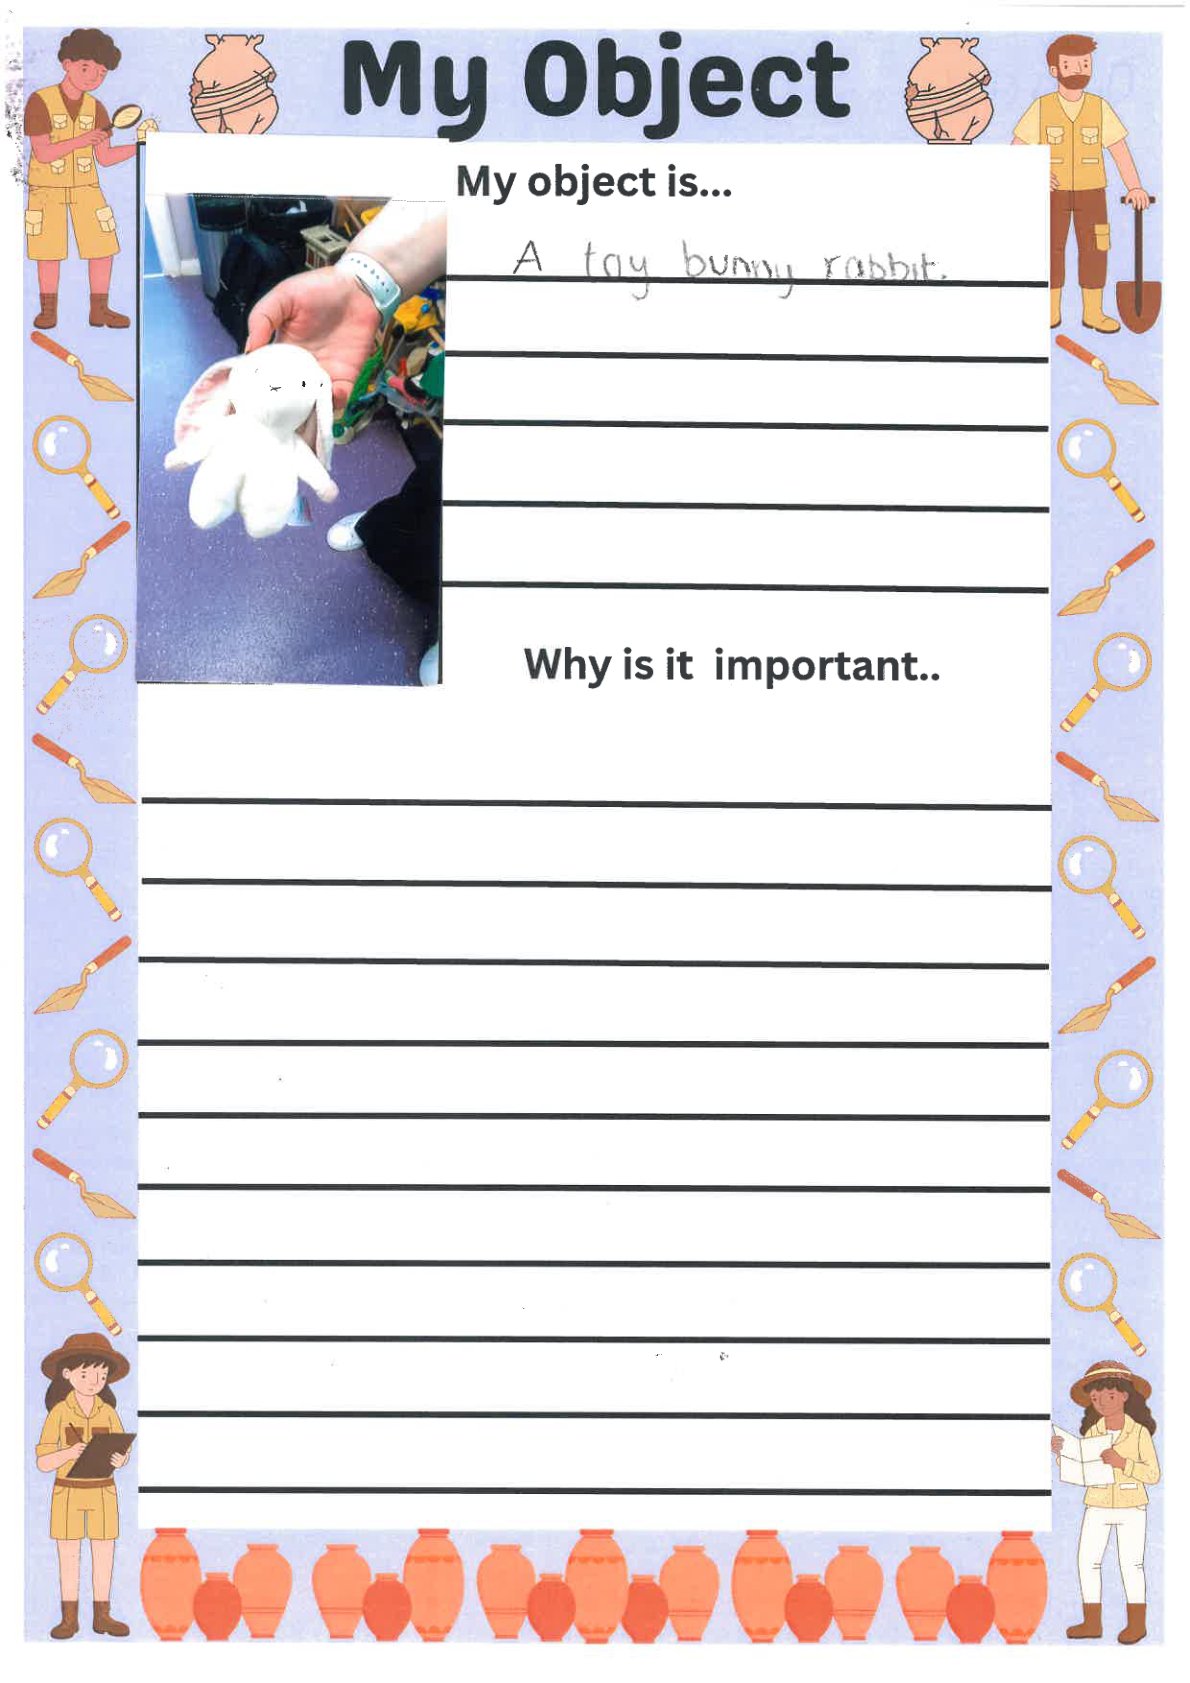 My Object
My object is...
A toy bunny rabbit.
Why is it important..